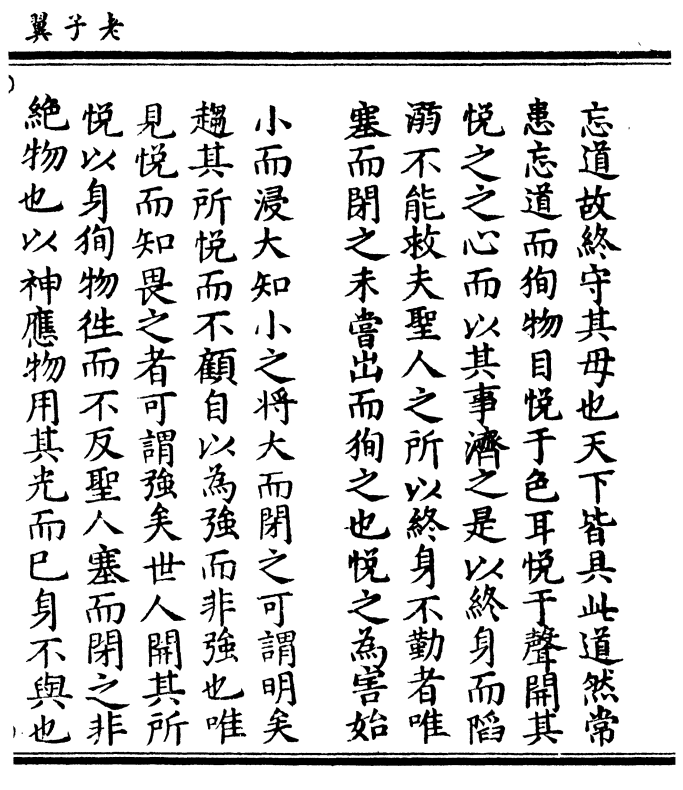 老子翼
忘道故終守其母也天下皆具此道然常
患忘道而徇物目悦于色耳悦于聲開其
悦之之心而以其事濟之是以終身而陷
溺不能救夫聖人之所以終身不勤者唯
塞而閉之未嘗出而徇之也悦之為害始
小而浸大知小之将大而閉之可謂明矣
趨其所悦而不顧自以為強而非強也唯
見悦而知畏之者可謂強矣世人開其所
悦以身徇物徃而不反聖人塞而閉之非
絶物也以神應物用其光而已身不與也